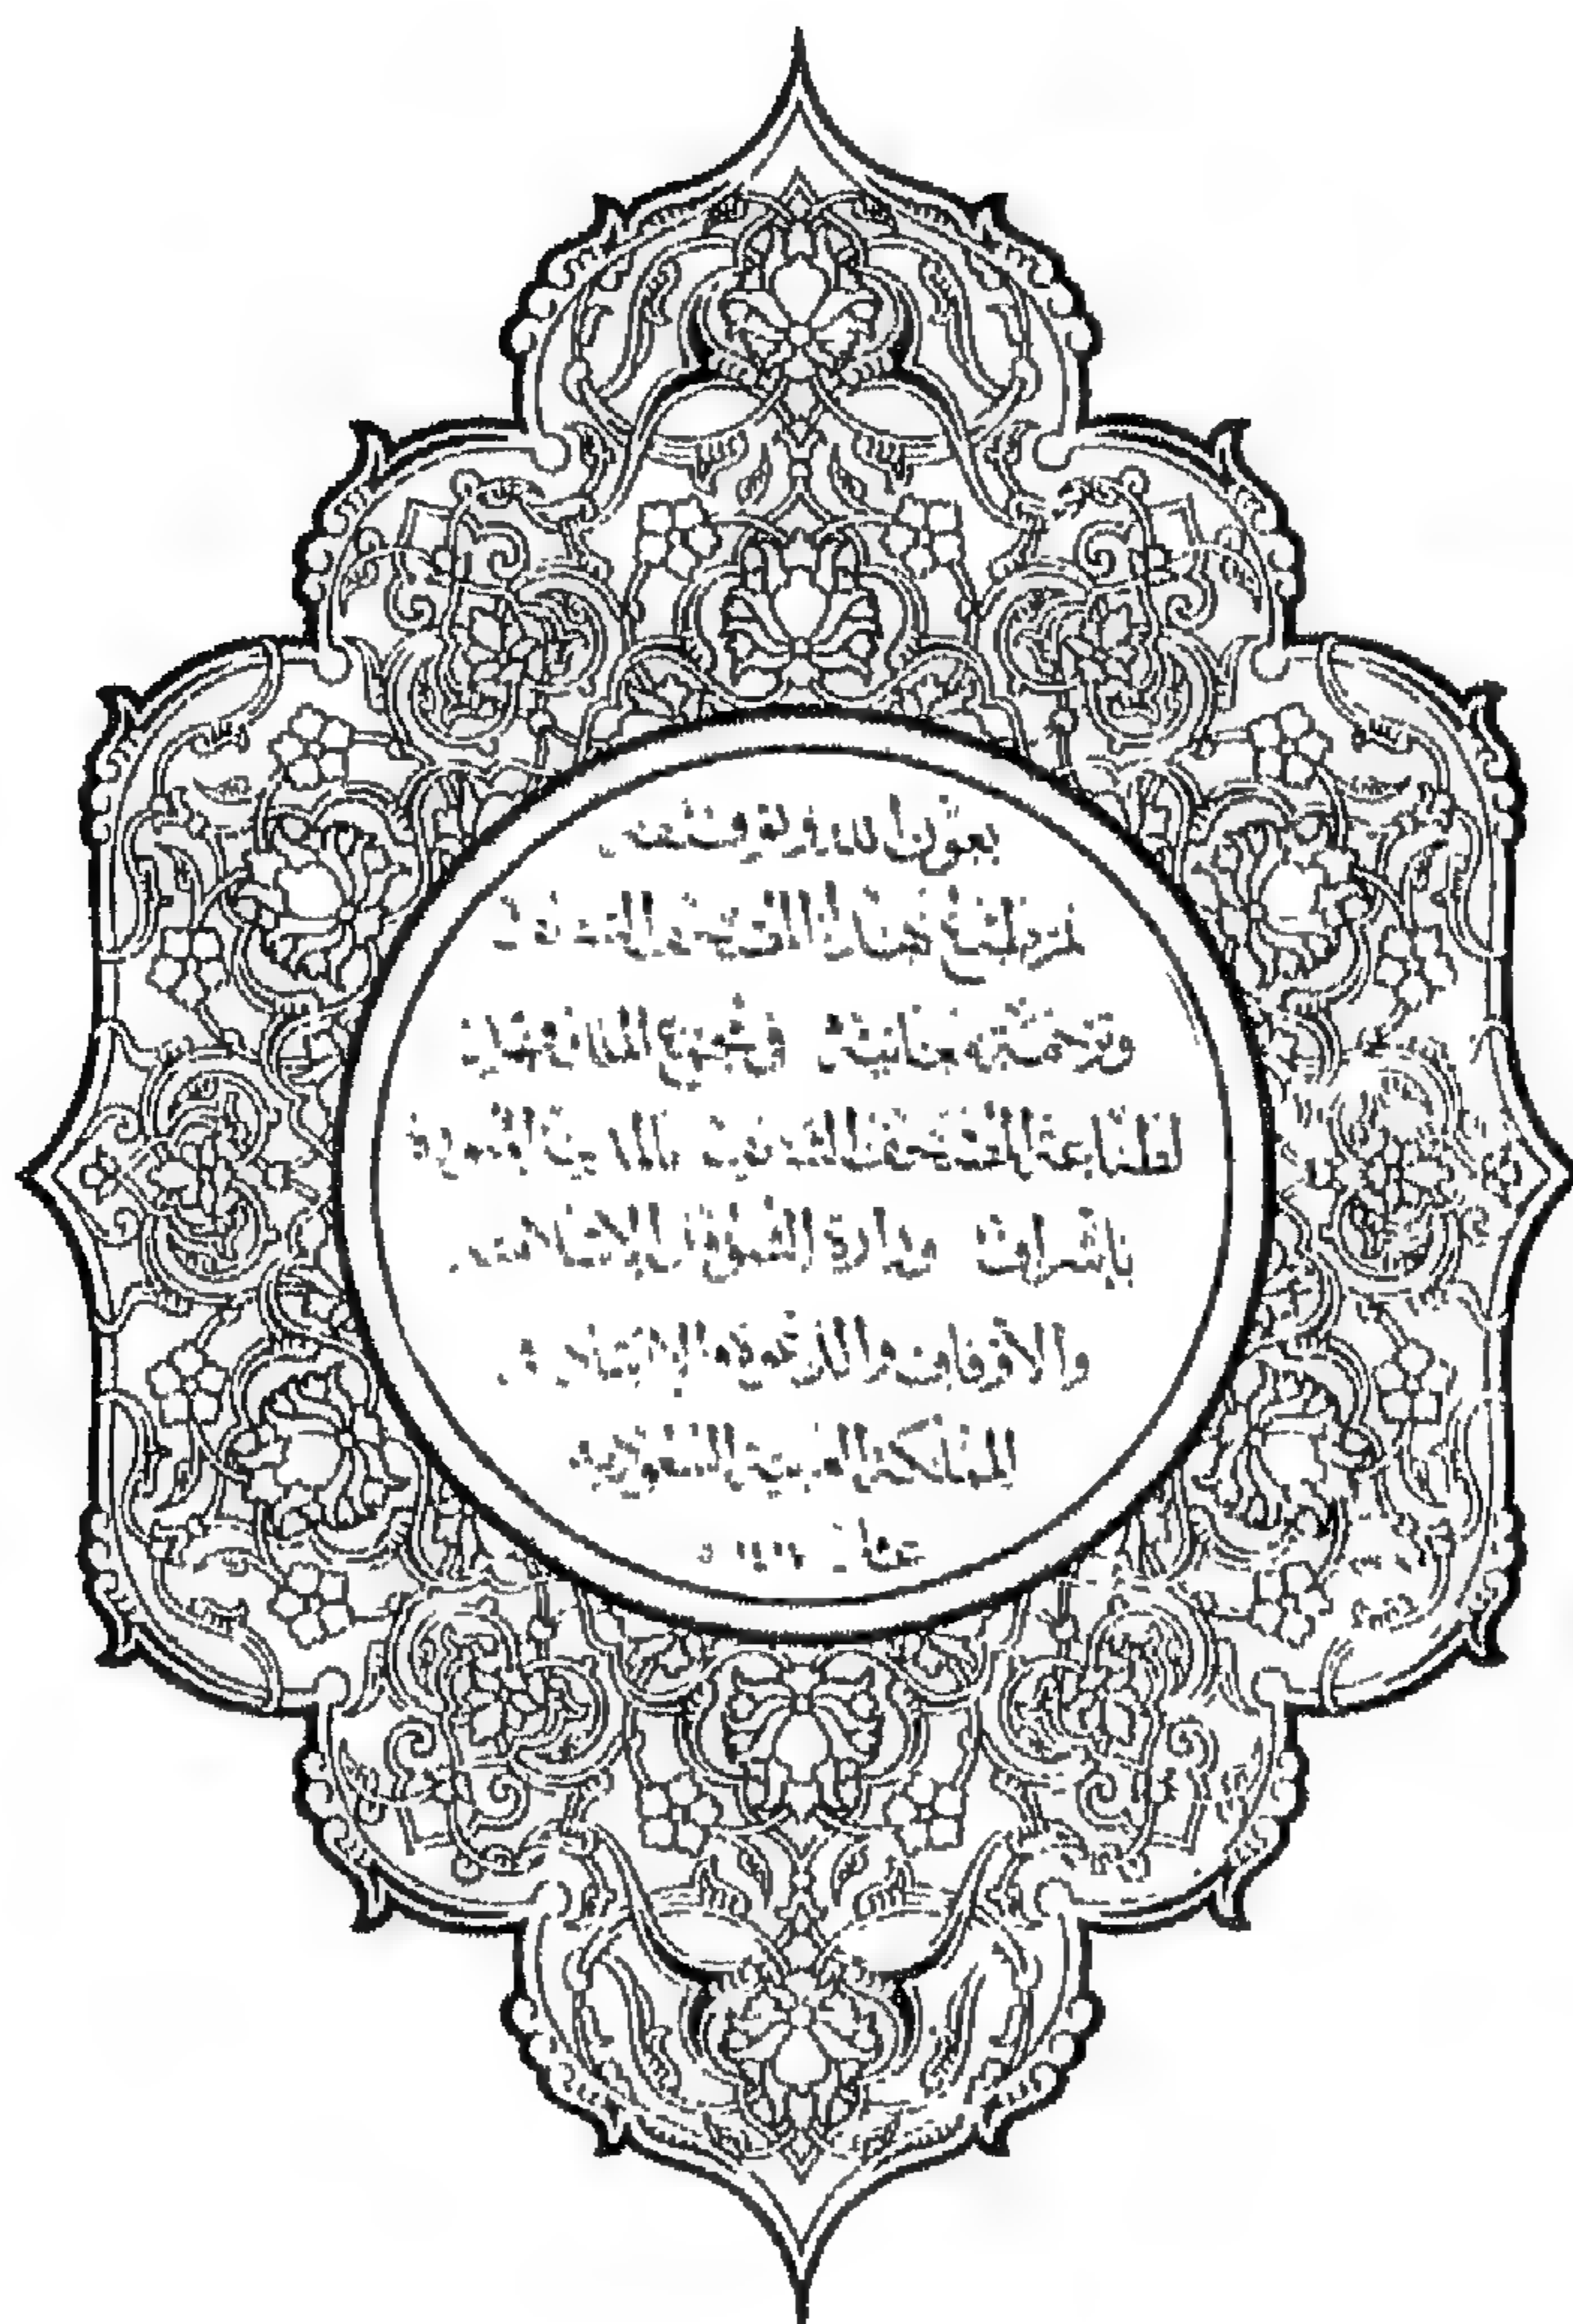 بعون الله وتوفيقه
تم طبع هذا المصحف الشريف
وترجمة معانيه في مجمع الملك فهد
لطباعة المصحف الشريف بالمدينة المنورة
بإشراف وزارة الشؤون الإسلامية
والأوقاف والدعوة والإرشاد
المملكة العربية السعودية
عام